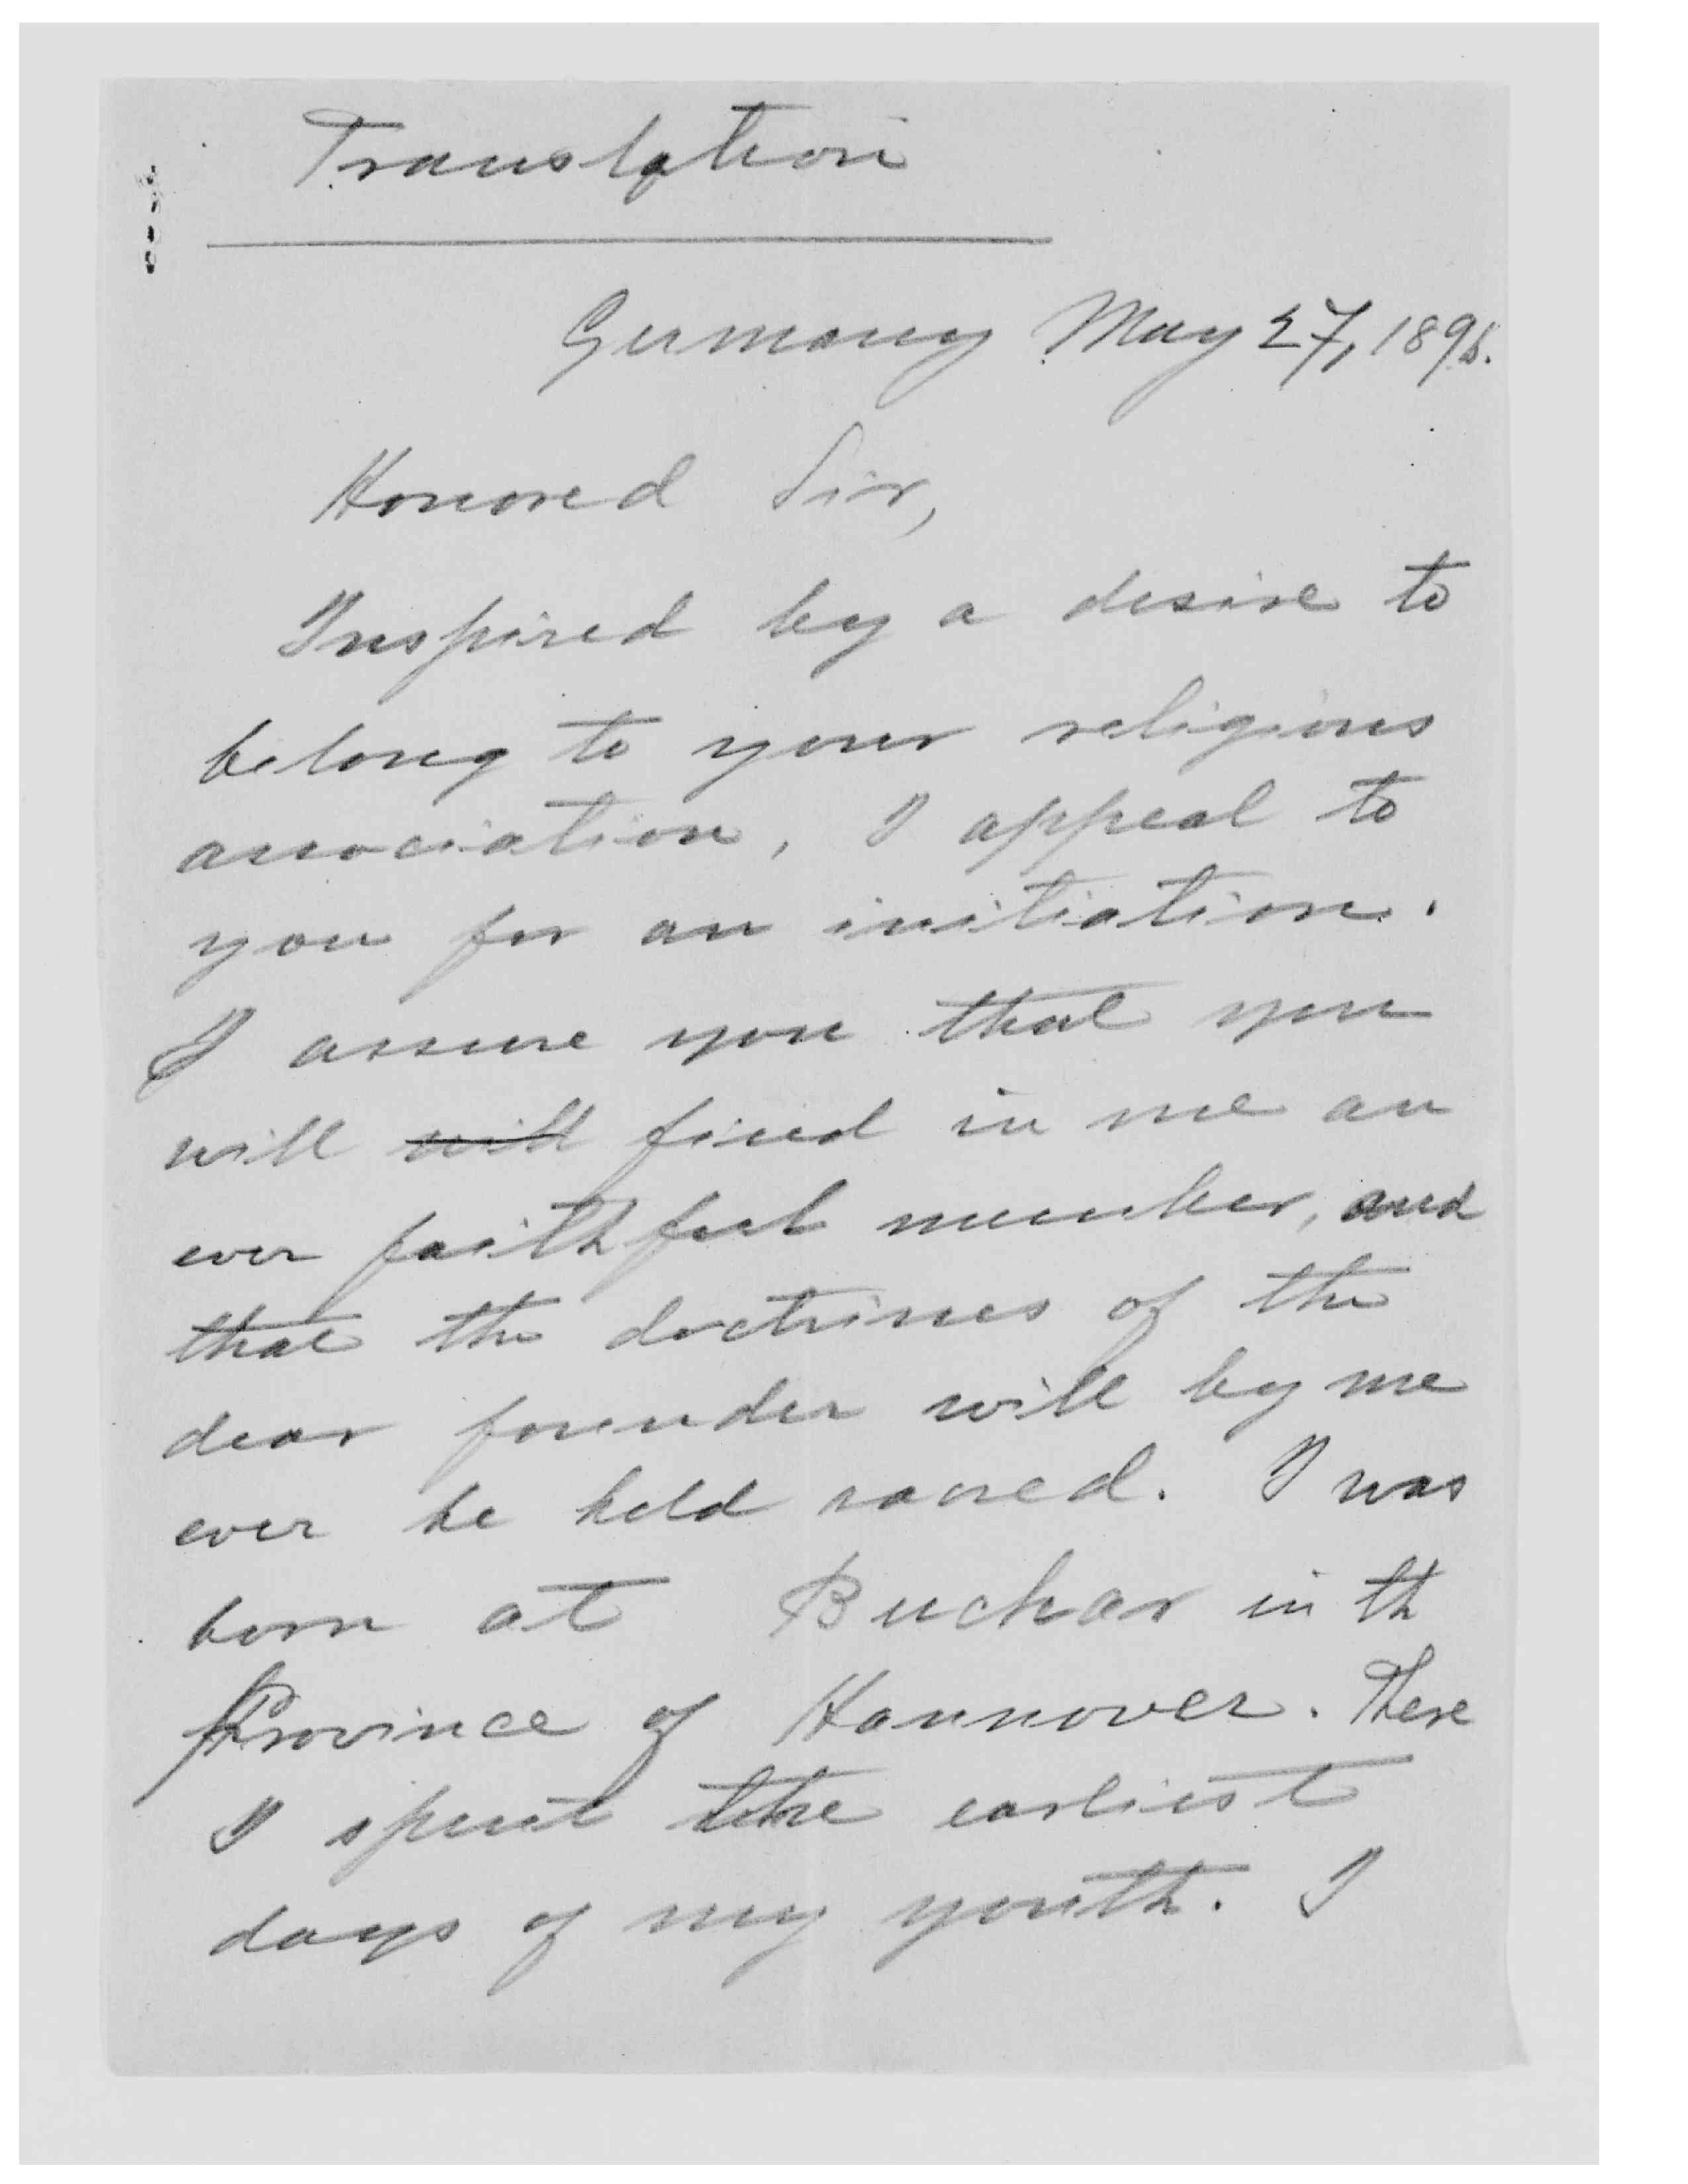 Translation
Germany May 27, 1896.
Honored Sir,
Inspired by a desire to
belong to your religious
association, I appeal to
you for an initiation.
I assure you that you
will will find in me an
ever faithful member, and
that the doctrines of the
dear founder will by me
ever be held sacred. I was
born at Buchar in th
Province of Hannover. There
I spent the earliest
days of my youth. I